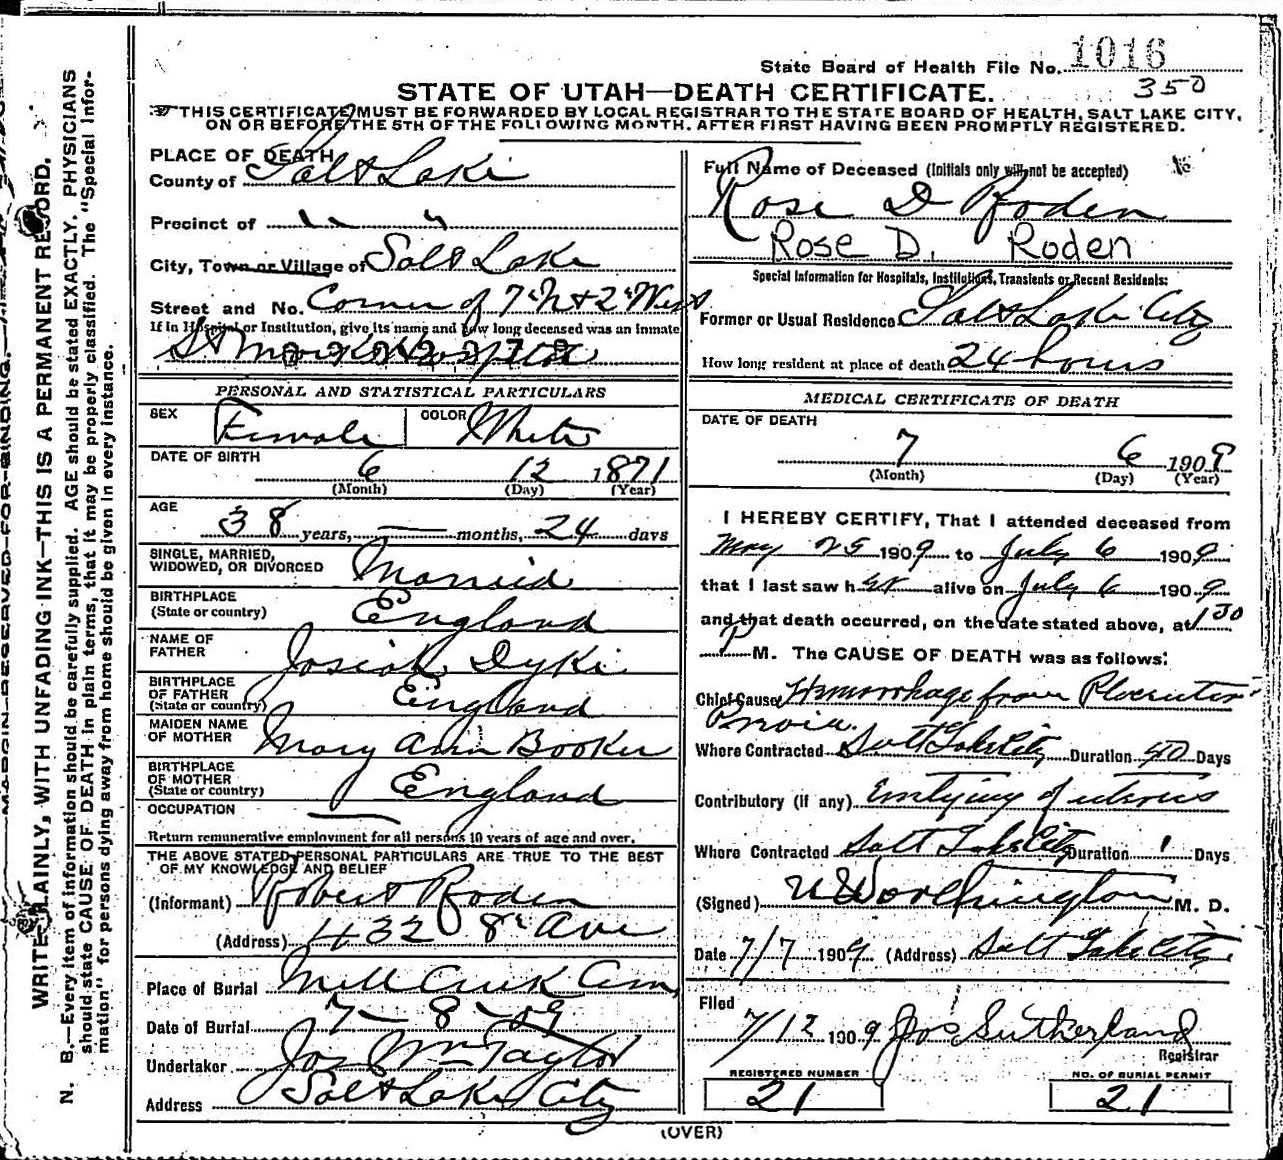 State Board of Health File No. 1016
350
STATE OF UTAH—DEATH CERTIFICATE.
THIS CERTIFICATE MUST BE FORWARDED BY LOCAL REGISTRAR TO THE STATE BOARD OF HEALTH, SALT LAKE CITY,
ON OR BEFORE THE 5TH OF THE FOLLOWING MONTH. AFTER FIRST HAVING BEEN PROMPTLY REGISTERED.
PLACE OF DEATH
County of Salt Lake
Precinct of " "
City, Town or Village of Salt Lake
Street and No. Corner of 7th N & 2nd West
If in Hospital or Institution, give its name and how long deceased was an inmate
St Marks Hospital
PERSONAL AND STATISTICAL PARTICULARS
SEX Female COLOR White
DATE OF BIRTH 6 12 1871
(Month) (Day) (Year)
AGE 38 years, — months, 24 days
SINGLE, MARRIED,
WIDOWED, OR DIVORCED Married
BIRTHPLACE
(State or country) England
NAME OF
FATHER Josiah Dyke
BIRTHPLACE
OF FATHER
(State or country) England
MAIDEN NAME
OF MOTHER Mary Ann Booker
BIRTHPLACE
OF MOTHER
(State or country) England
OCCUPATION —
Return remunerative employment for all persons 10 years of age and over.
THE ABOVE STATED PERSONAL PARTICULARS ARE TRUE TO THE BEST
OF MY KNOWLEDGE AND BELIEF
(Informant) Robert Roden
(Address) 432 8th Ave
Place of Burial Mill Creek Cem
Date of Burial 7 — 8 — 09
Undertaker Jos Wm Taylor
Address Salt Lake City
Full Name of Deceased (Initials only will not be accepted)
Rose D Roden
Rose D. Roden
Special Information for Hospitals, Institutions, Transients or Recent Residents:
Former or Usual Residence Salt Lake City
How long resident at place of death 24 hours
MEDICAL CERTIFICATE OF DEATH
DATE OF DEATH
7 6 1909
(Month) (Day) (Year)
I HEREBY CERTIFY, That I attended deceased from
May 25 1909 to July 6 1909
that I last saw her alive on July 6 1909
and that death occurred, on the date stated above, at 130
P M. The CAUSE OF DEATH was as follows:
Chief Cause Hemorrhage from Placenta
Previa
Where Contracted Salt Lake City Duration 40 Days
Contributory (if any) Emtying of uterus
Where Contracted Salt Lake City Duration 1 Days
(Signed) Worthington M. D.
Date 7/7 1909 (Address) Salt Lake City
Filed
7/12 1909 Jos Sutherland
Registrar
REGISTERED NUMBER
21
NO. OF BURIAL PERMIT
21
(OVER)
WRITE PLAINLY, WITH UNFADING INK—THIS IS A PERMANENT RECORD.
N. B.—Every item of information should be carefully supplied. AGE should be stated EXACTLY. PHYSICIANS
should state CAUSE OF DEATH in plain terms, that it may be properly classified. The "Special Infor-
mation" for persons dying away from home should be given in every instance.
MARGIN RESERVED FOR BINDING.